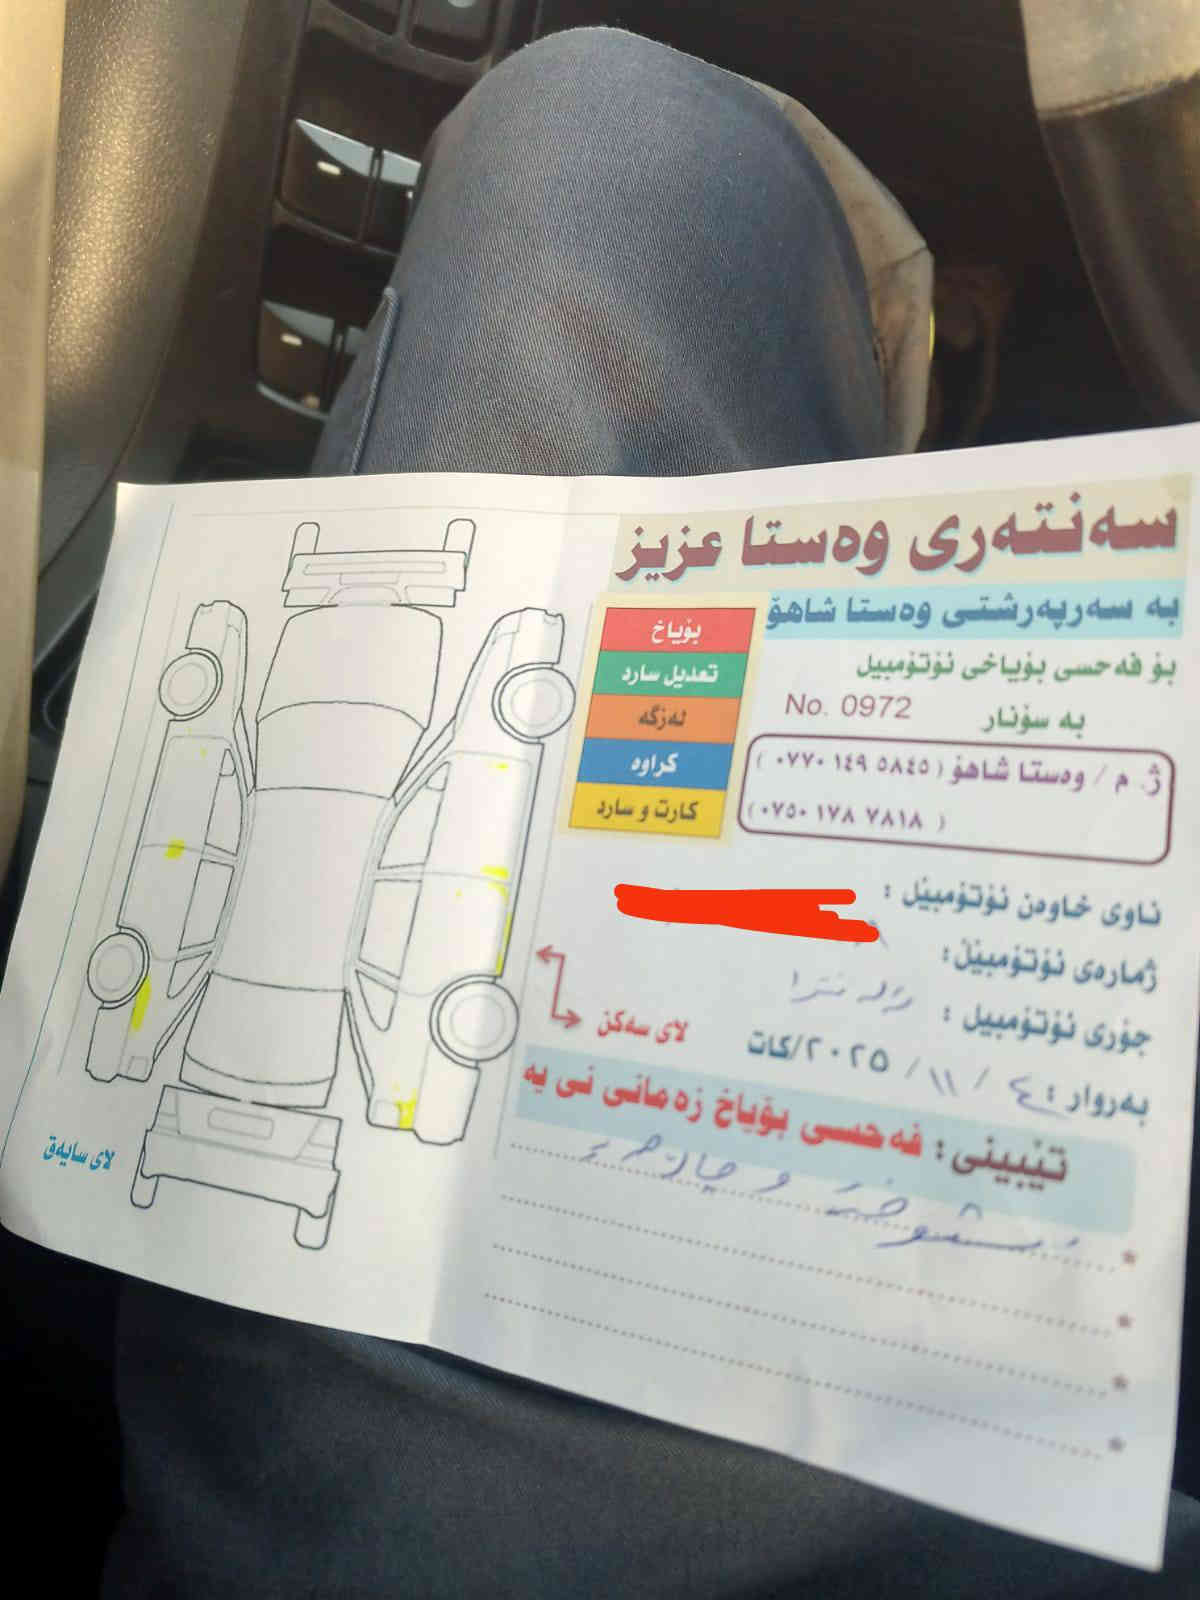 سەنتەری وەستا عزیز
بە سەرپەرشتی وەستا شاهۆ
بۆ فەحسی بۆیاخی ئۆتۆمبیل
بە سۆنار No. 0972
ژ. م / وەستا شاهۆ ( ٠٧٧٠ ١٤٩ ٥٨٤٥ )
( ٠٧٥٠ ١٧٨ ٧٨١٨ )
بۆیاخ
تعدیل سارد
لەزگە
کراوە
کارت و سارد
ناوی خاوەن ئۆتۆمبیل :
ژمارەی ئۆتۆمبیل:
جۆری ئۆتۆمبیل :
بەروار : ٤ / ١١ / ٢٠٢٥/کات
لای سەکن
تێبینی: فەحسی بۆیاخ زەمانی نی یە
لای سایەق